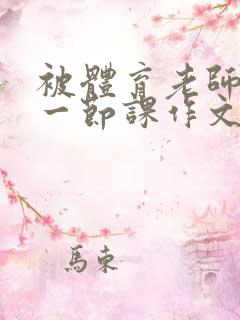 被體育老師
一節課作文
馬東